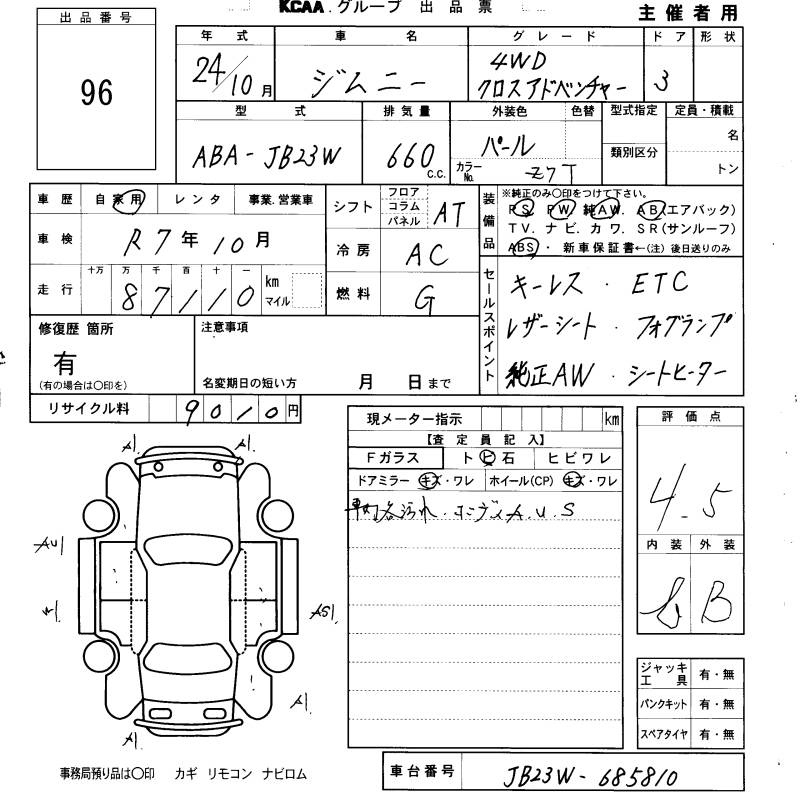 KCAA.グループ 出品票 主催者用
出品番号
96
年式 車名 グレード ドア 形状
24/10月 ジムニー 4WD クロスアドベンチャー 3
型式 排気量 外装色 色替 型式指定 定員・積載
ABA-JB23W 660 C.C. パール カラーNo. Z7T 類別区分 名 トン
車歴 自家用 レンタ 事業.営業車
車検 R7年10月
走行 十万 万 千 百 十 一 87110 km マイル
シフト フロア コラム パネル AT
冷房 AC
燃料 G
装備品 ※純正のみ○印をつけて下さい。
PS. PW. 純AW. AB(エアバック)
TV. ナビ. カワ. SR(サンルーフ)
ABS・ 新車保証書←(注) 後日送りのみ
セールスポイント
キーレス ・ ETC
レザーシート ・ フォグランプ
純正AW ・ シートヒーター
修復歴 箇所 注意事項
有
(有の場合は○印を) 名変期日の短い方 月 日まで
リサイクル料 9010円
現メーター指示 km
【査定員記入】
Fガラス ト ヒ 石 ヒビワレ
ドアミラー キズ・ワレ ホイール(CP) キズ・ワレ
車内汚れ.ボディA.U.S
評価点
4.5
内装 外装
B
A1 A1
AU1
AS1
A1
A1
ジャッキ工具 有・無
パンクキット 有・無
スペアタイヤ 有・無
事務局預り品は○印 カギ リモコン ナビロム
車台番号 JB23W-685810